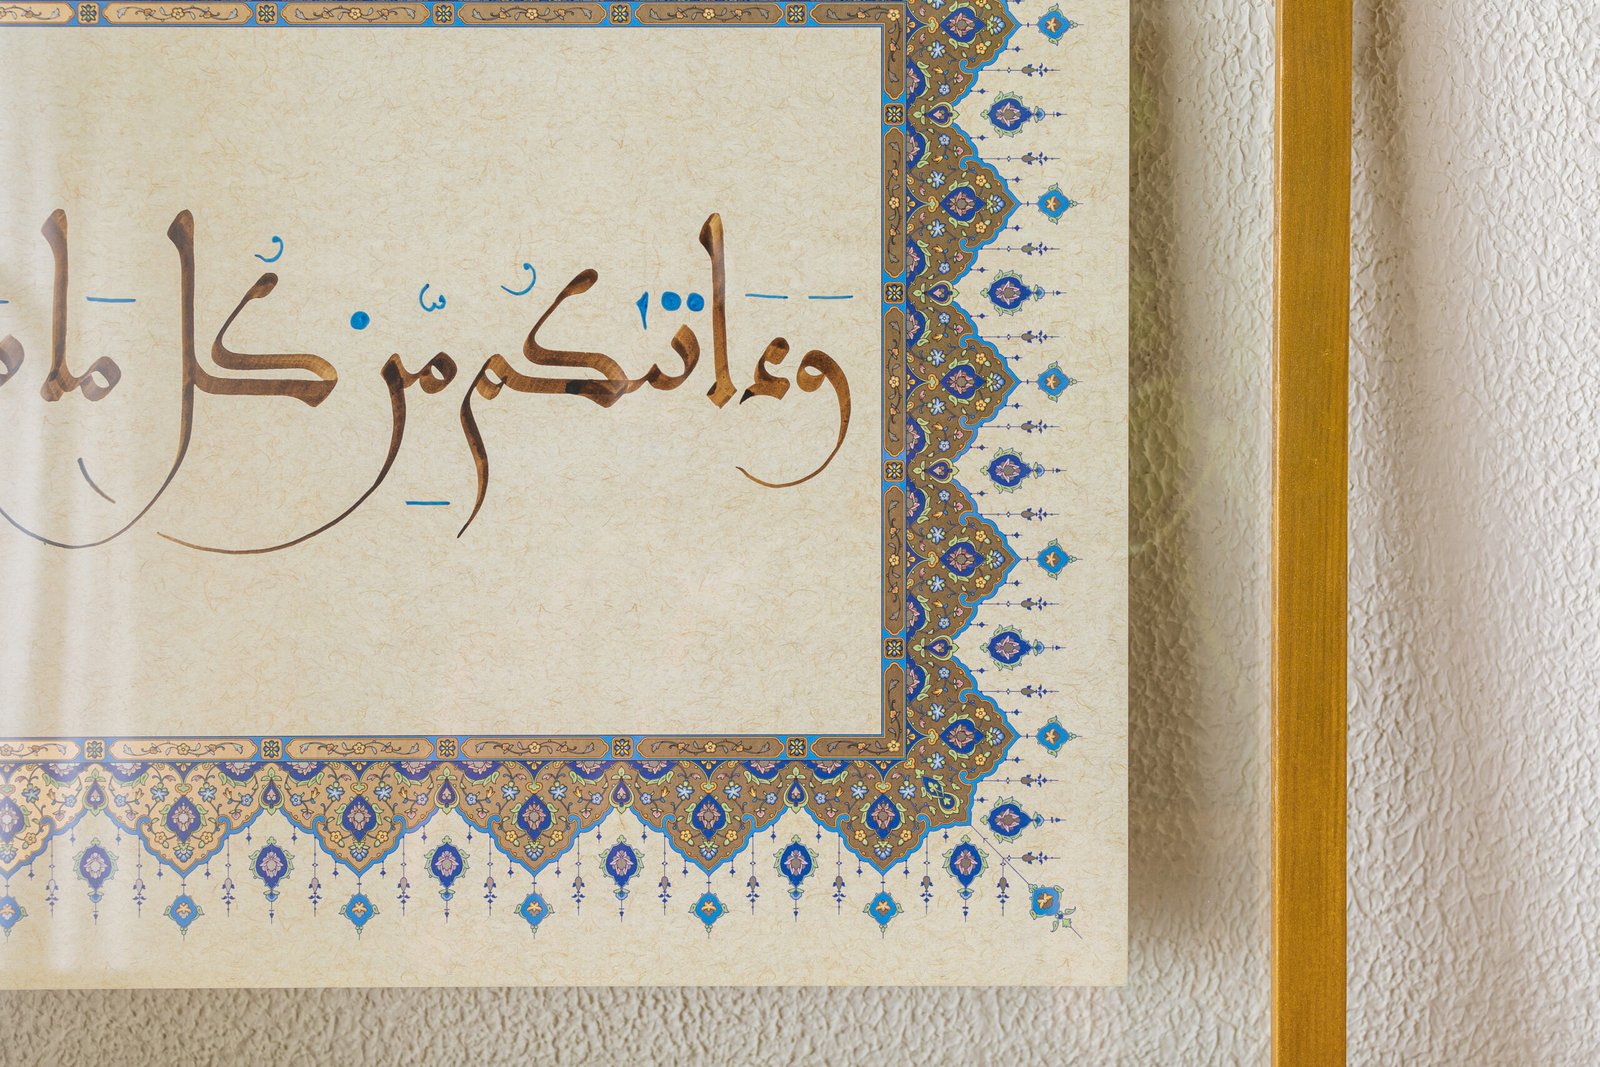 وَءَاتىٰكُم مِّن كُلِّ مَا